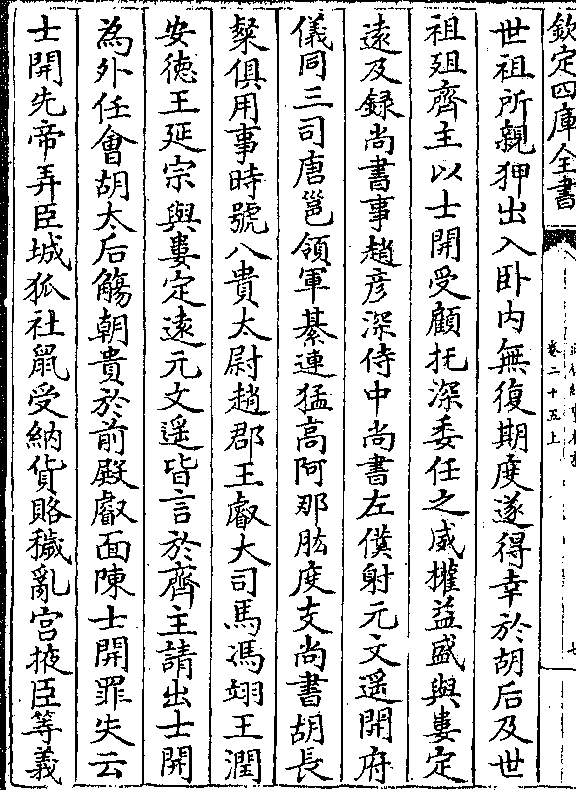 欽定四庫全書
卷二十五上
世祖所親狎出入卧内無復期度遂得幸於胡后及世
祖殂齊主以士開受顧托深委任之威權益盛與婁定
遠及録尚書事趙彦深侍中尚書左僕射元文遥開府
儀同三司唐邕領軍綦連猛高阿那肱度支尚書胡長
粲俱用事時號八貴太尉趙郡王叡大司馬馮翊王潤
安德王延宗與婁定遠元文遥皆言於齊主請出士開
為外任會胡太后觴朝貴於前殿叡面陳士開罪失云
士開先帝弄臣城狐社鼠受納貨賂穢亂宫掖臣等義